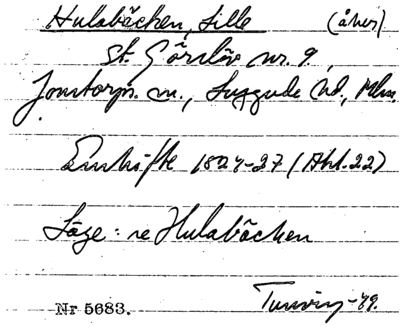 Hulabäcken, Lilla (åker)
St. Görslöv nr. 9,
Jonstorps sn., Luggude hd., Mlm.
Enskifte 1824-27 (Akt. 22)
Läge: se Hulabäcken
Nr 5683.
-49.